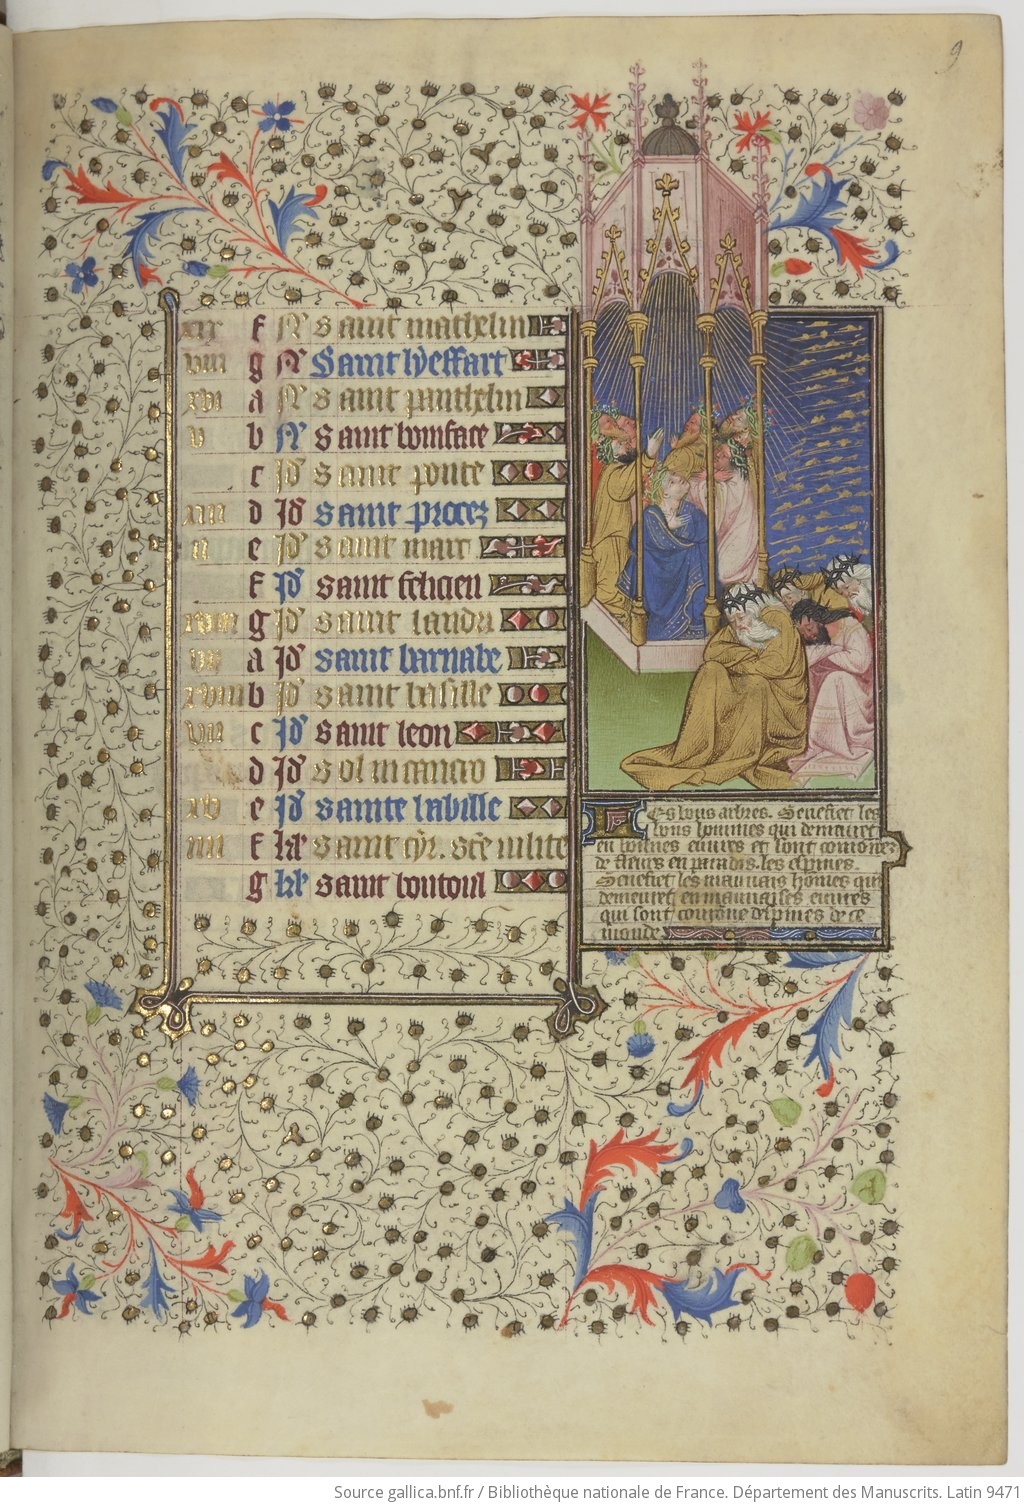 9
xix f N saint mathelin
viii g N Saint lyeffart
xvi a N saint panthelin
v b N saint boniface
c Id saint ponce
xiii d Id saint procez
ii e Id saint marc
f Id saint felicien
g Id saint landri
a Id saint barnabe
xviii b Id saint basille
vii c Id saint leon
d Id sol in cancro
xv e Id sainte sabille
iiii f kl saint cyr. ste iulite
g kl saint boutoul
Les bons arbres. Senefiet les
bons hommes qui demeurēt
en bonnes euures et sont couronez
de fleurs en paradis. les espines.
Senefiet les mauuais hōmes qui
demeurēt en mauuaises euures
qui sont courōne despines de ce
monde
Source gallica.bnf.fr / Bibliothèque nationale de France. Département des Manuscrits. Latin 9471